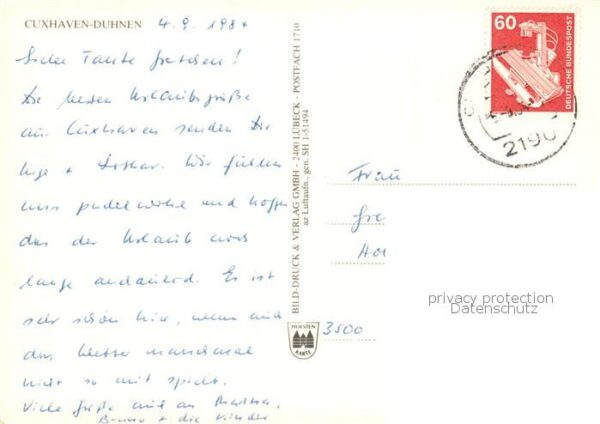 CUXHAVEN-DUHNEN 4.9.198
Liebe Tante Gretchen!
Die besten Urlaubsgrüße
aus Cuxhaven senden Dir
Inge + Lothar. Wir fühlen
uns pudelwohl und hoffen
das der Urlaub noch
lange andauert. Es ist
sehr schön hier, wenn auch
das Wetter manchmal
nicht so mit spielt.
Viele Grüße auch an Martha,
Benno + die Kinder
BILD-DRUCK & VERLAG GMBH - 2400 LÜBECK - POSTFACH 1710
az Luftaufn., gen. SH 1-51494
HOLSTEN
KARTE
60
DEUTSCHE BUNDESPOST
2190
Frau
Gre
3500
privacy protection
Datenschutz